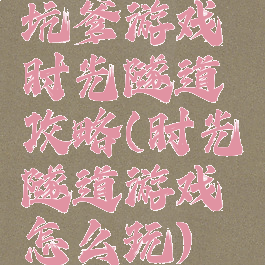 坑爹游戏
时光隧道
攻略(时光
隧道游戏
怎么玩)